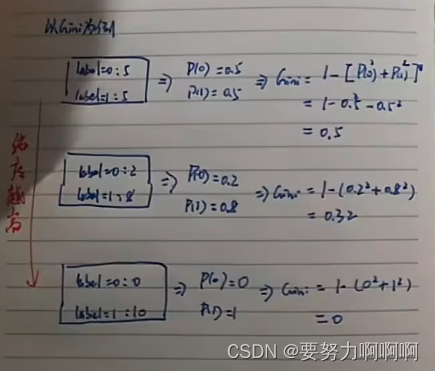 以Gini为例
label=0:5 ⇒ P(0)=0.5 ⇒ Gini = 1-[P(0)²+P(1)²]
label=1:5 P(1)=0.5 = 1-0.5²-0.5²
= 0.5
label=0:2 ⇒ P(0)=0.2 ⇒ Gini = 1-(0.2²+0.8²)
label=1:8 P(1)=0.8 = 0.32
label=0:0 ⇒ P(0)=0 ⇒ Gini = 1-(0²+1²)
label=1:10 P(1)=1 = 0
纯度越高
CSDN @要努力啊啊啊